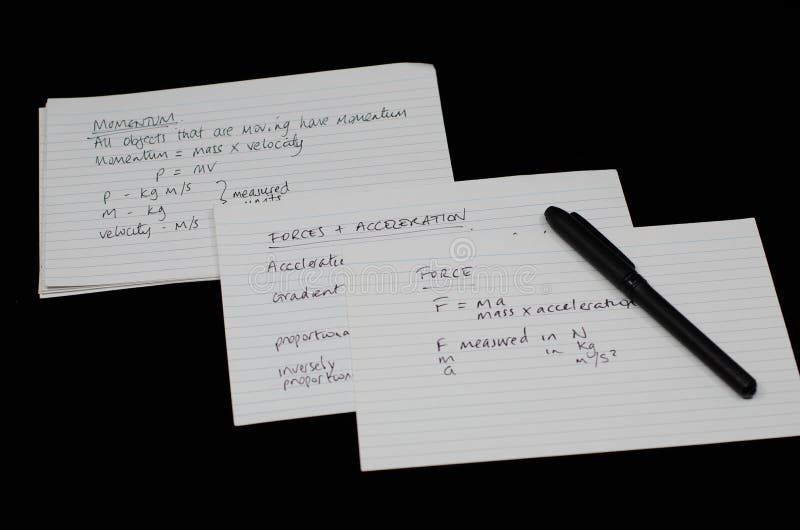 MOMENTUM
All objects that are moving have momentum
Momentum = mass x velocity
p = mv
p - kg m/s } measured
m - kg units
velocity - m/s
FORCES + ACCELERATION
Accelerati
Gradient
proportiona
inversely
proportion
FORCE
F = ma
mass x acceleration
F measured in N
m in kg
a m/s²
dreamstime